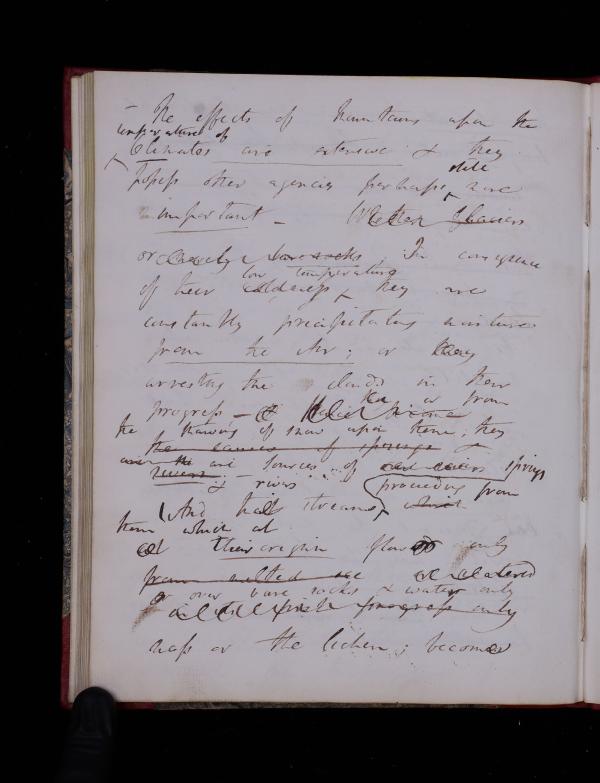 - The effects of Mountains upon the
temperature of
Climates are extensive & they
possess other agencies perhaps still more
important - Whether Glaciers
or merely bare rocks; In consequence
low temperature
of their coldness they are
constantly precipitating moisture
from the Air; or
arresting the clouds in their
progress - or from
the thawing of snow upon them, they
the causes of springs &
are sources of springs
rivers & rivers proceeding from
And the streams which
them which at
at their origin flow only
from melted ice
or over bare rocks & water only
progress only
moss or the lichen; become